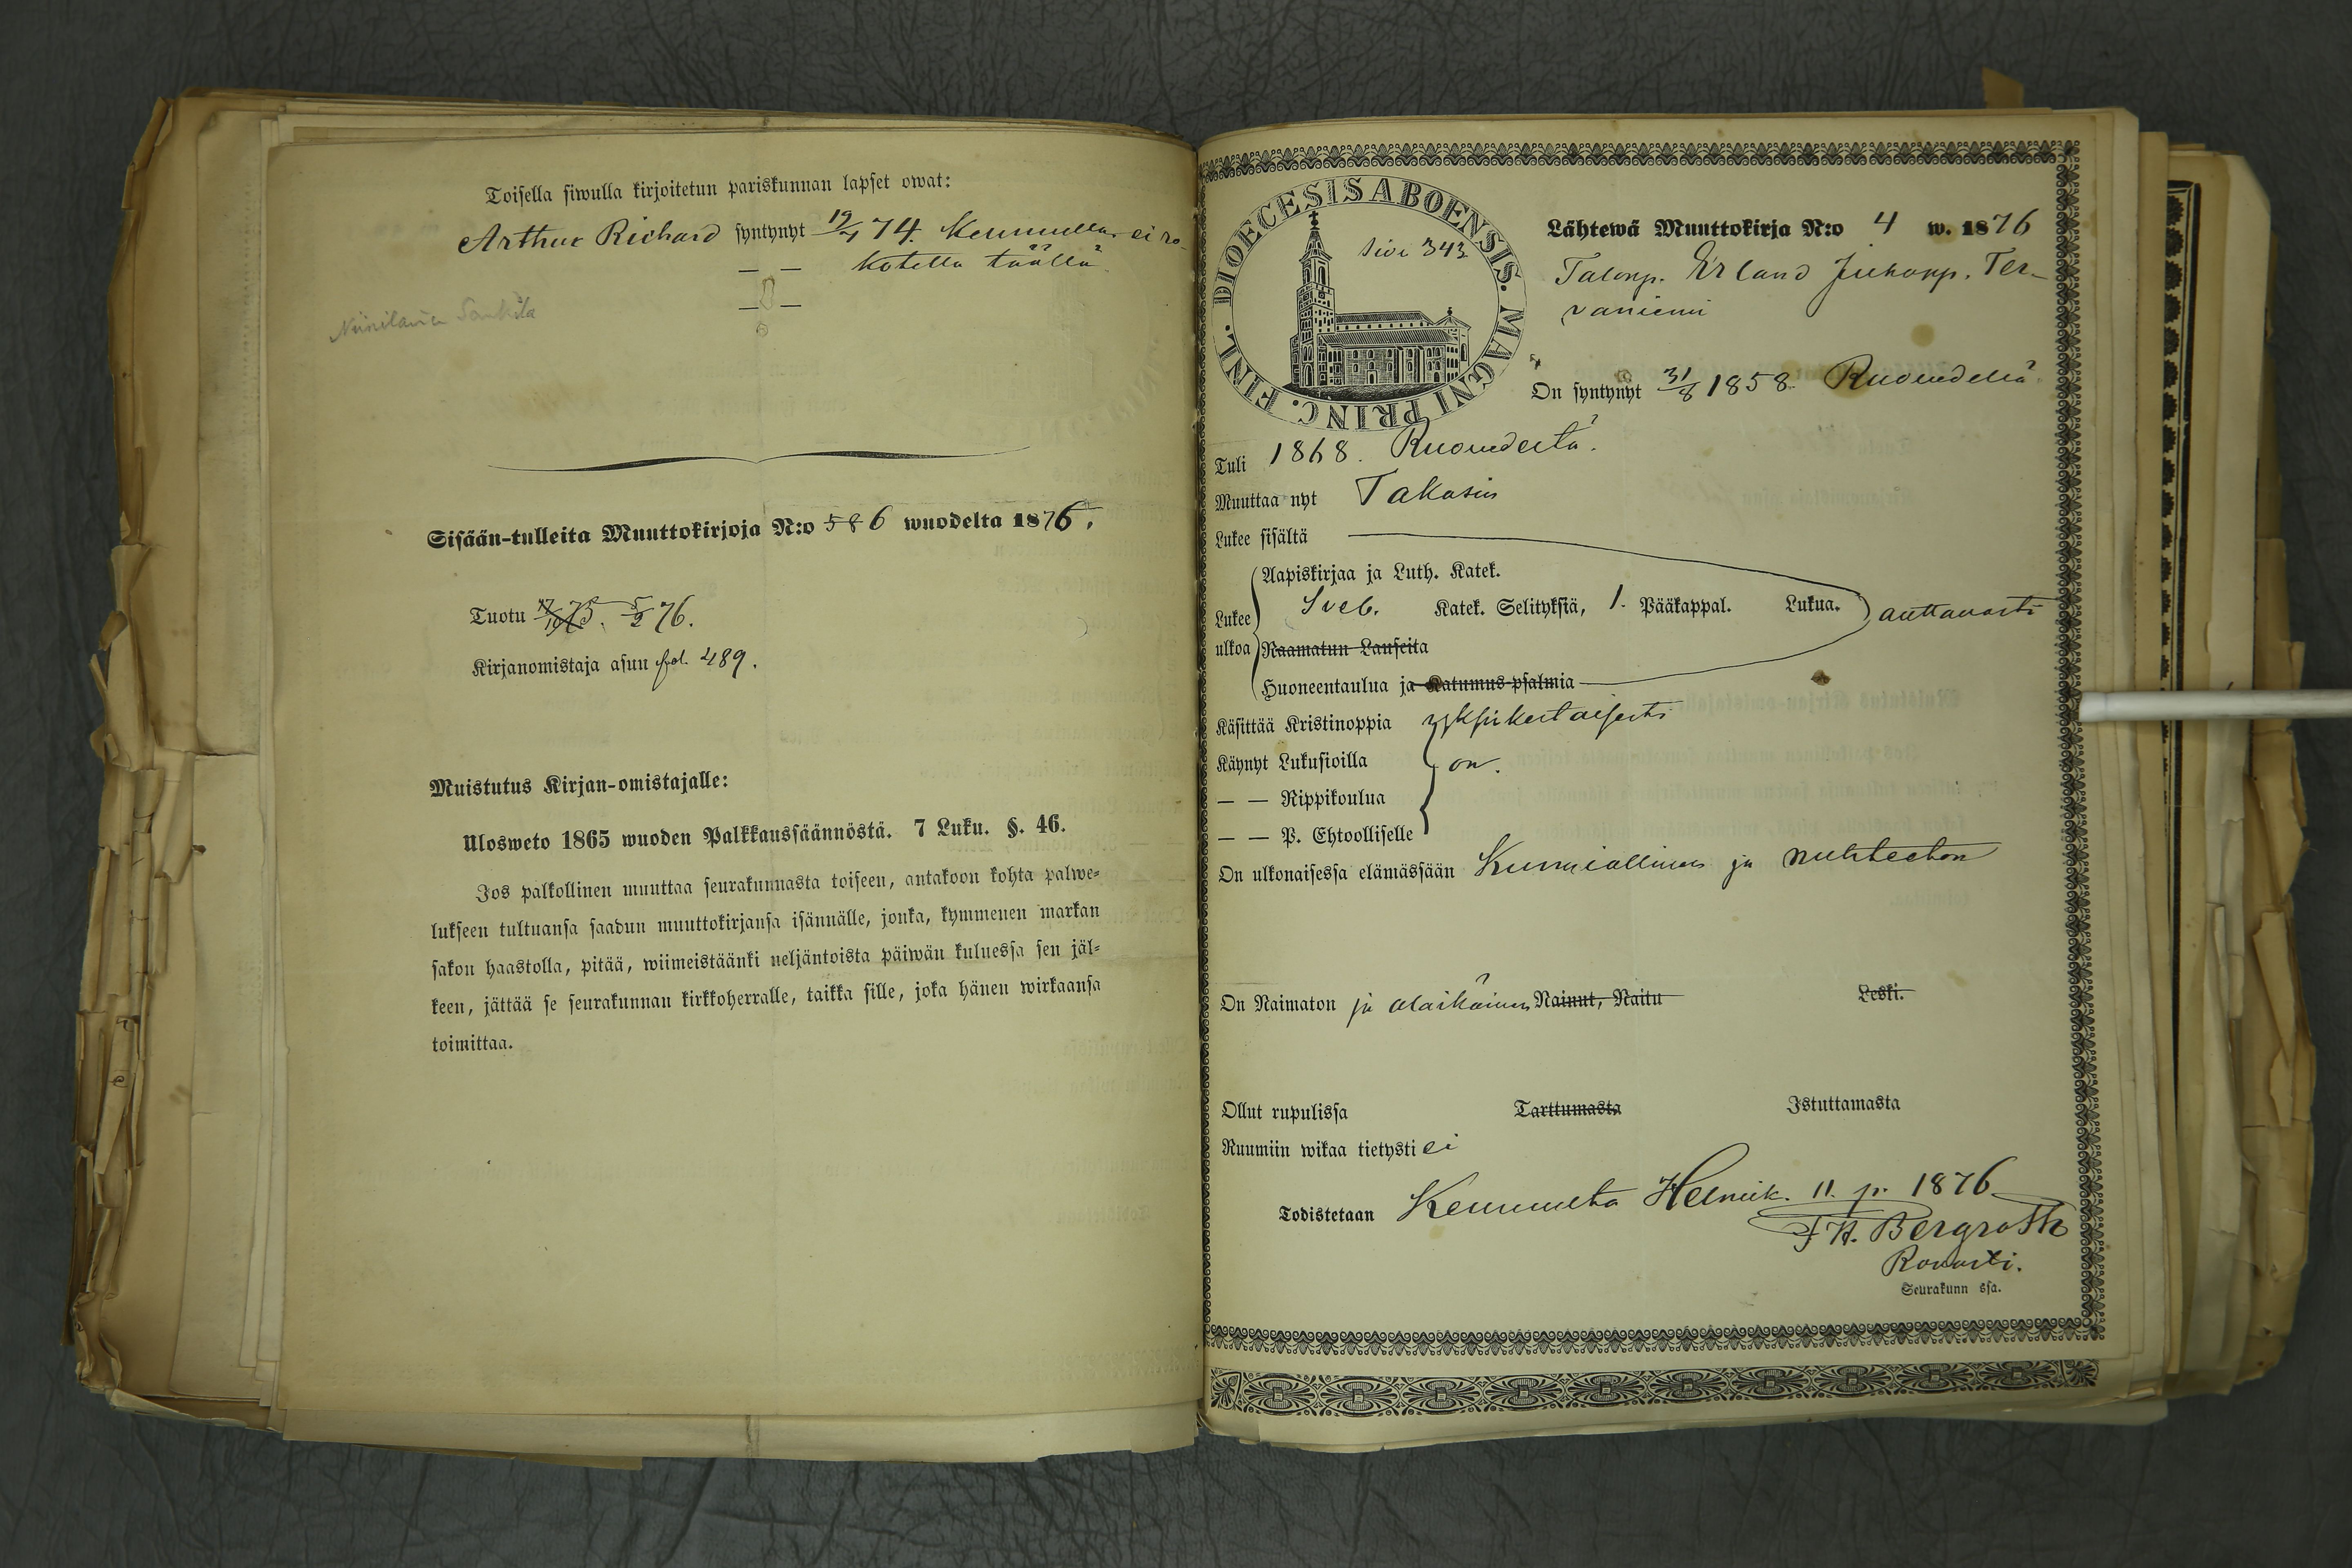 Toisella siwulla kirjoitetun pariskunnan lapset owat:
Arthur Richard syntynyt 19/4 74. Keuruulla ei ro-
— — kotettu täällä
— —
Sisään-tulleita Muuttokirjoja N:o 5 8 6 wuodelta 1876.
Tuotu 5/2 76.
Kirjanomistaja asuu fol. 489.
Muistutus Kirjan-omistajalle:
Ulosweto 1865 wuoden Palkkaussäännöstä. 7 Luku. §. 46.
Jos palkollinen muuttaa seurakunnasta toiseen, antakoon kohta palwe-
lukseen tultuansa saadun muuttokirjansa isännälle, jonka, kymmenen markan
sakon haastolla, pitää, wiimeistäänki neljäntoista päiwän kuluessa sen jäl-
keen, jättää se seurakunnan kirkkoherralle, taikka sille, joka hänen wirkaansa
toimittaa.
DIOECESIS ABOENSIS. MAGNI PRINC. FINL.
Sivu 343
Lähtewä Muuttokirja N:o 4 w. 1876
Talonp. Erland Juhanp. Ter-
vaniemi
On syntynyt 31/8 1858. Ruovedellä
Tuli 1868. Ruovedeltä.
Muuttaa nyt Takasin
Lukee sisältä
Aapiskirjaa ja Luth. Katek.
Lukee ulkoa Sveb. Katek. Selityksiä, 1. Pääkappal. Lukua. auttavasti
Raamatun Lauseita
Huoneentaulua ja Katumus-psalmia
Käsittää Kristinoppia yksinkertaisesti
Käynyt Lukusioilla on.
— — Rippikoulua
— — P. Ehtoolliselle
On ulkonaisessa elämässään Kunniallinen ja nuhteeton
On Naimaton ja alaikäinen Nainut, Naitu Leski.
Ollut rupulissa Tarttumasta Istuttamasta
Ruumiin wikaa tietysti ei
Todistetaan Keuruulta Helmik. 11. p. 1876
F. H. Bergroth
Rovasti.
Seurakunn ssa.